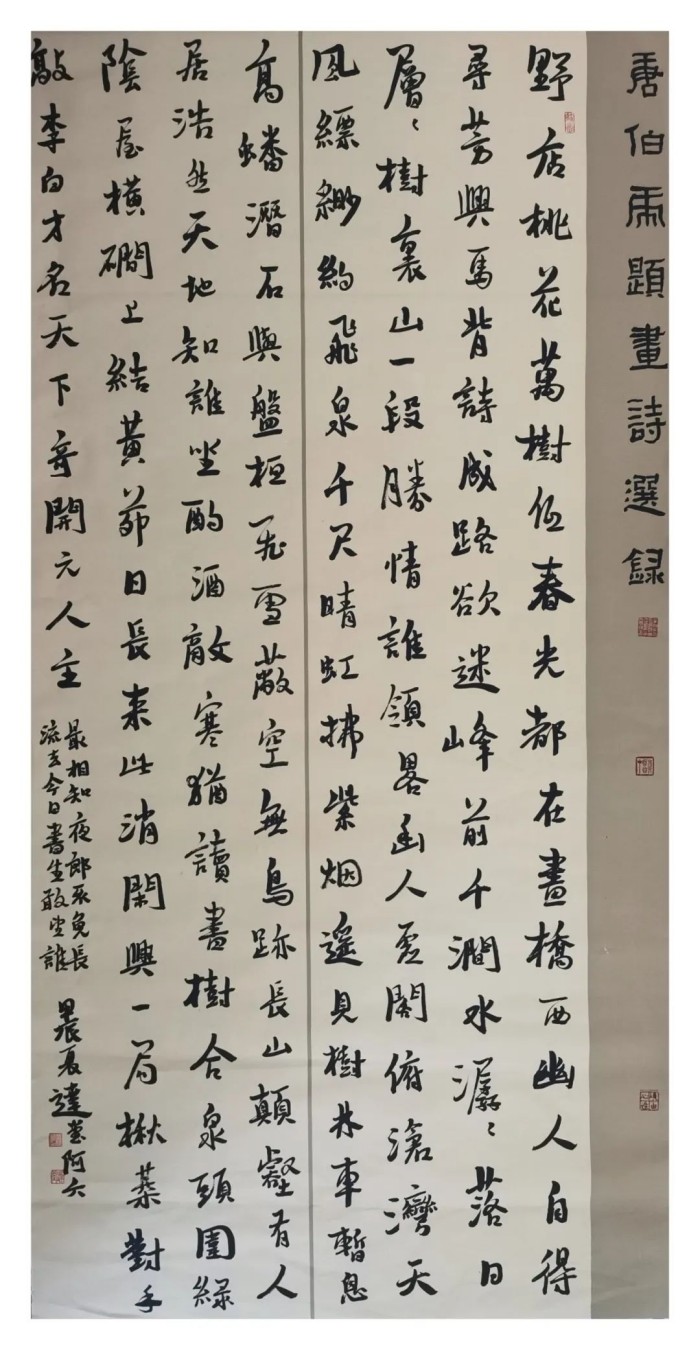 唐伯虎題畫詩選録
野店桃花萬樹低春光都在畫橋西幽人自得
尋芳興馬背詩成路欲迷峰前千澗水潺〻落日
層〻樹裏山一段勝情誰領畧幽人虛閣俯滄灣天
風縹緲約飛泉千尺晴虹拂紫烟遥見樹林車暫息
高蟠潛石與盤桓飛雪蔽空無鳥跡長山顛壑有人
居浩然天地知誰坐酌酒敵寒猶讀書樹合泉頭圍綠
陰屋橫磵上結黃茆日長來此消閑興一局楸棊對手
敲李白才名天下奇開元人主
最相知夜郎不免長
流去今日書生敢望誰